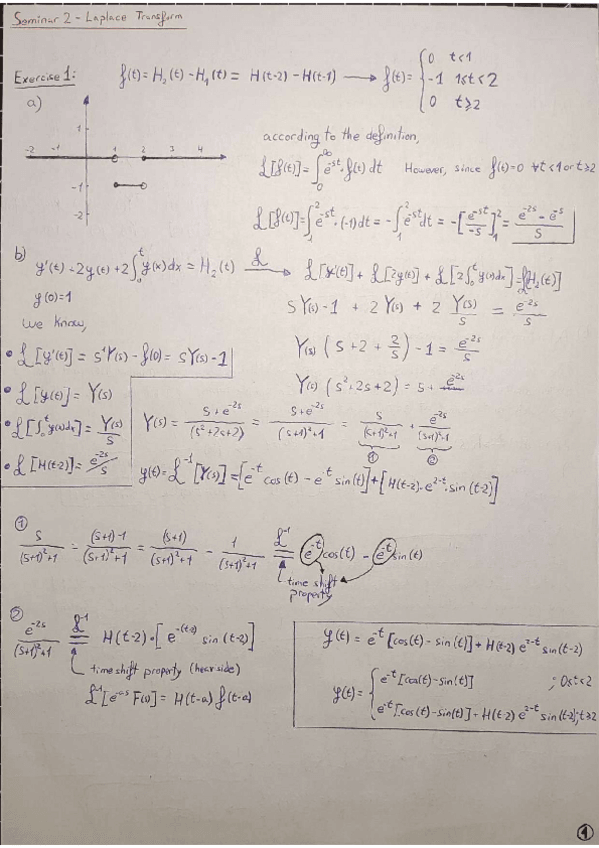 Seminar 2 - Laplace Transform
Exercise 1: f(t) = H₂(t) - H₁(t) = H(t-2) - H(t-1) → f(t) = { 0 t<1
-1 1≤t<2
0 t≥2
a)
1
-2 -1 1 2 3 4
-1
-2
according to the definition,
L[f(t)] = ∫₀^∞ e^-st · f(t) dt However, since f(t)=0 ∀t<1 or t≥2
L[f(t)] = ∫₁² e^-st · (-1) dt = -∫₁² e^-st dt = -[e^-st/-s]₁² = (e^-2s - e^-s)/s
b) y'(t) + 2y(t) + 2∫₀^t y(x)dx = H₂(t) L→ L[y'(t)] + L[2y(t)] + L[2∫₀^t y(x)dx] = L[H₂(t)]
y(0)=1
sY(s) - 1 + 2Y(s) + 2 Y(s)/s = e^-2s/s
we know,
Y(s) (s + 2 + 2/s) - 1 = e^-2s/s
• L[y'(t)] = s¹Y(s) - f(0) = sY(s) - 1
• L[y(t)] = Y(s)
Y(s) (s² + 2s + 2) = s +
• L[∫₀^t y(x)dx] = Y(s)/s
Y(s) = (s+e^-2s)/(s²+2s+2) = (s+e^-2s)/((s+1)²+1) = s/((s+1)²+1) + e^-2s/((s+1)²+1)
① ②
• L[H(t-2)] = e^-2s/s
y(t) = L⁻¹[Y(s)] = [e^-t cos(t) - e^-t sin(t)] + [H(t-2)·e^2-t · sin(t-2)]
①
s/((s+1)²+1) = ((s+1)-1)/((s+1)²+1) = (s+1)/((s+1)²+1) - 1/((s+1)²+1) L⁻¹= e^-t cos(t) - e^-t sin(t)
time shift
property
②
e^-2s/((s+1)²+1) L⁻¹= H(t-2)·[e^-(t-2) sin(t-2)]
time shift property (heaviside)
L⁻¹[e^-as F(s)] = H(t-a) f(t-a)
y(t) = e^-t [cos(t) - sin(t)] + H(t-2) e^2-t sin(t-2)
y(t) = { e^-t [cos(t) - sin(t)] ; 0≤t<2
e^-t [cos(t) - sin(t)] + H(t-2) e^2-t sin(t-2) ; t≥2
①